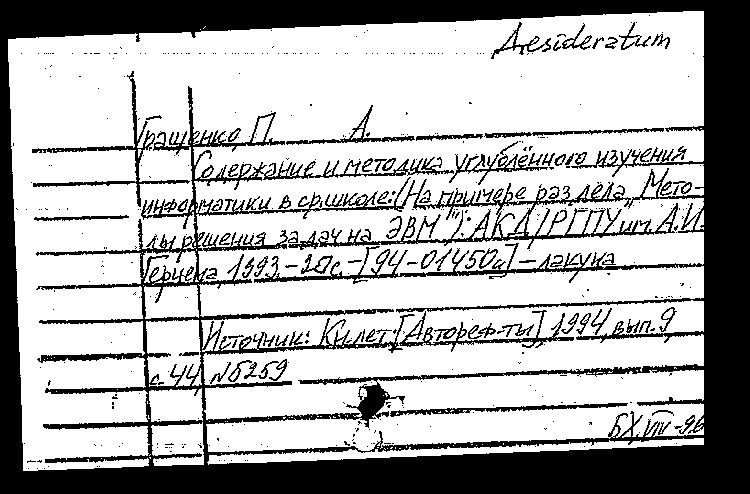 Desideratum
Гращенко, П. А.
Содержание и методика углублённого изучения
информатики в ср.школе: (На примере раздела „Мето-
ды решения задач на ЭВМ"): АКД/РГПУ им. А.И.
Герцена, 1993.-20с.-[94-01450а]-лакуна
Источник: Кн.лет.[Автореф-ты], 1994, вып.9,
с.44, №5259
БХ, VIII-96